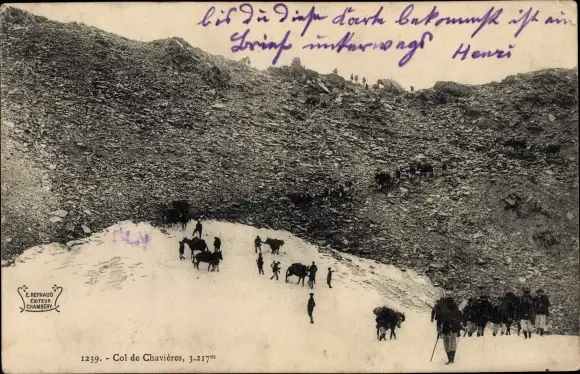 bis du diese Karte bekommst ist ein
Brief unterwegs Henri
E. REYNAUD
ÉDITEUR
CHAMBÉRY
1239. - Col de Chavières, 3.217m